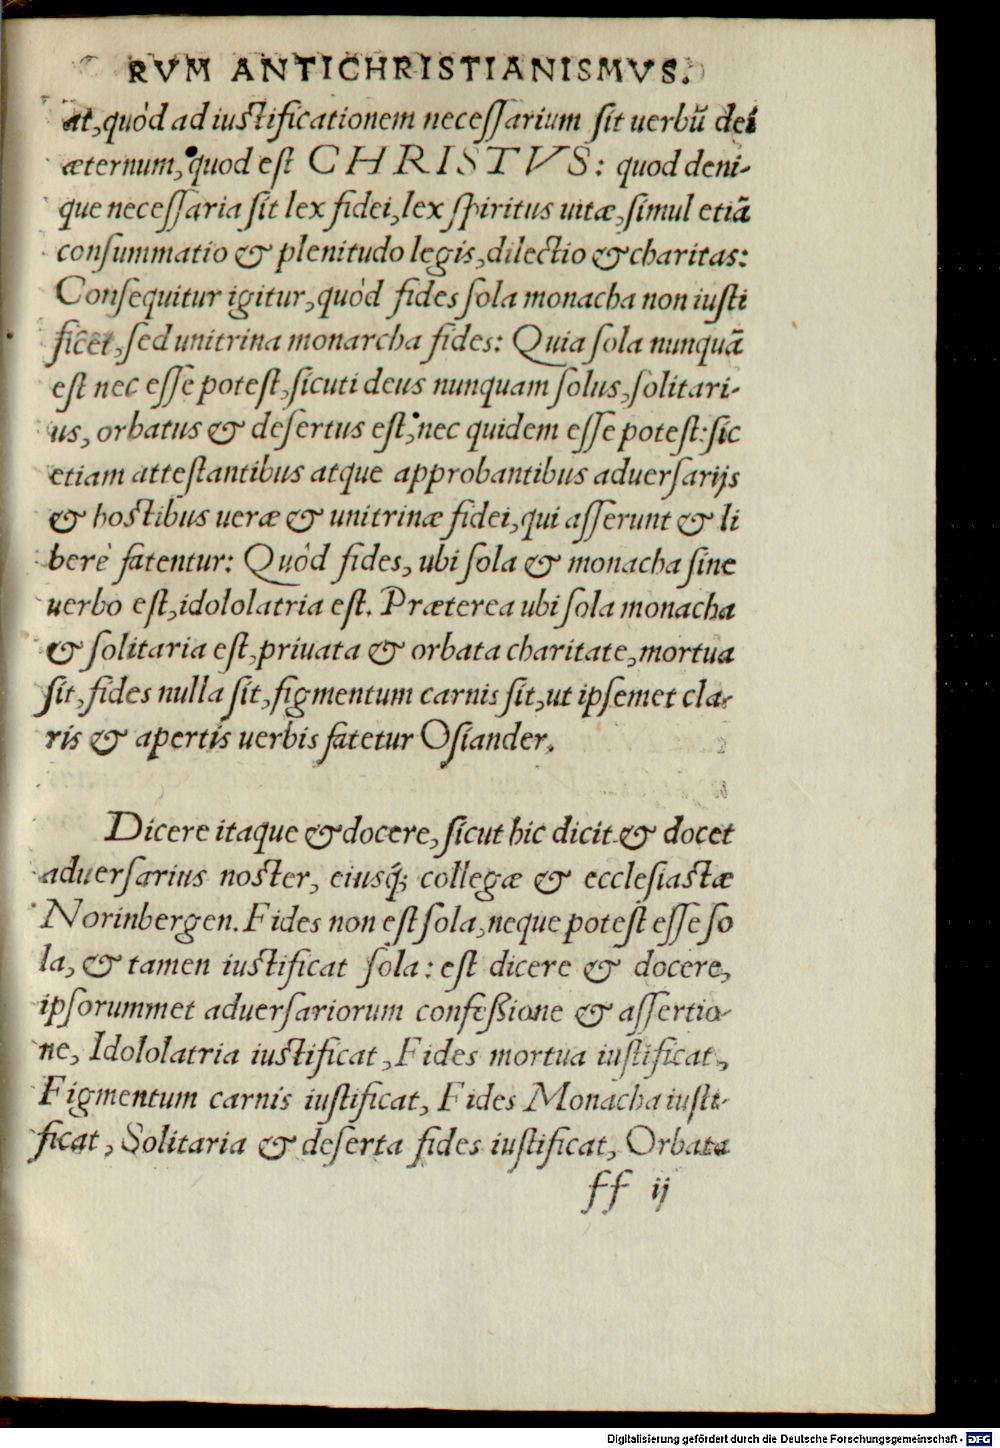 RVM ANTICHRISTIANISMVS.
at, quòd ad iustificationem necessarium sit uerbũ dei
æternum, quod est CHRISTVS: quod deni-
que necessaria sit lex fidei, lex spiritus uitæ, simul etiã
consummatio & plenitudo legis, dilectio & charitas:
Consequitur igitur, quòd fides sola monacha non iusti
ficet, sed unitrina monarcha fides: Quia sola nunquã
est nec esse potest, sicuti deus nunquam solus, solitari-
us, orbatus & desertus est, nec quidem esse potest: sic
etiam attestantibus atque approbantibus aduersarijs
& hostibus ueræ & unitrinæ fidei, qui asserunt & li
berè fatentur: Quòd fides, ubi sola & monacha sine
uerbo est, idololatria est. Præterea ubi sola monacha
& solitaria est, priuata & orbata charitate, mortua
sit, fides nulla sit, figmentum carnis sit, ut ipsemet cla-
ris & apertis uerbis fatetur Osiander.
Dicere itaque & docere, sicut hic dicit & docet
aduersarius noster, eiusq́; collegæ & ecclesiastæ
Norinbergen. Fides non est sola, neque potest esse so
la, & tamen iustificat sola: est dicere & docere,
ipsorummet aduersariorum confeßione & assertio-
ne, Idololatria iustificat, Fides mortua iustificat,
Figmentum carnis iustificat, Fides Monacha iusti-
ficat, Solitaria & deserta fides iustificat, Orbata
ff ij
Digitalisierung gefördert durch die Deutsche Forschungsgemeinschaft - DFG